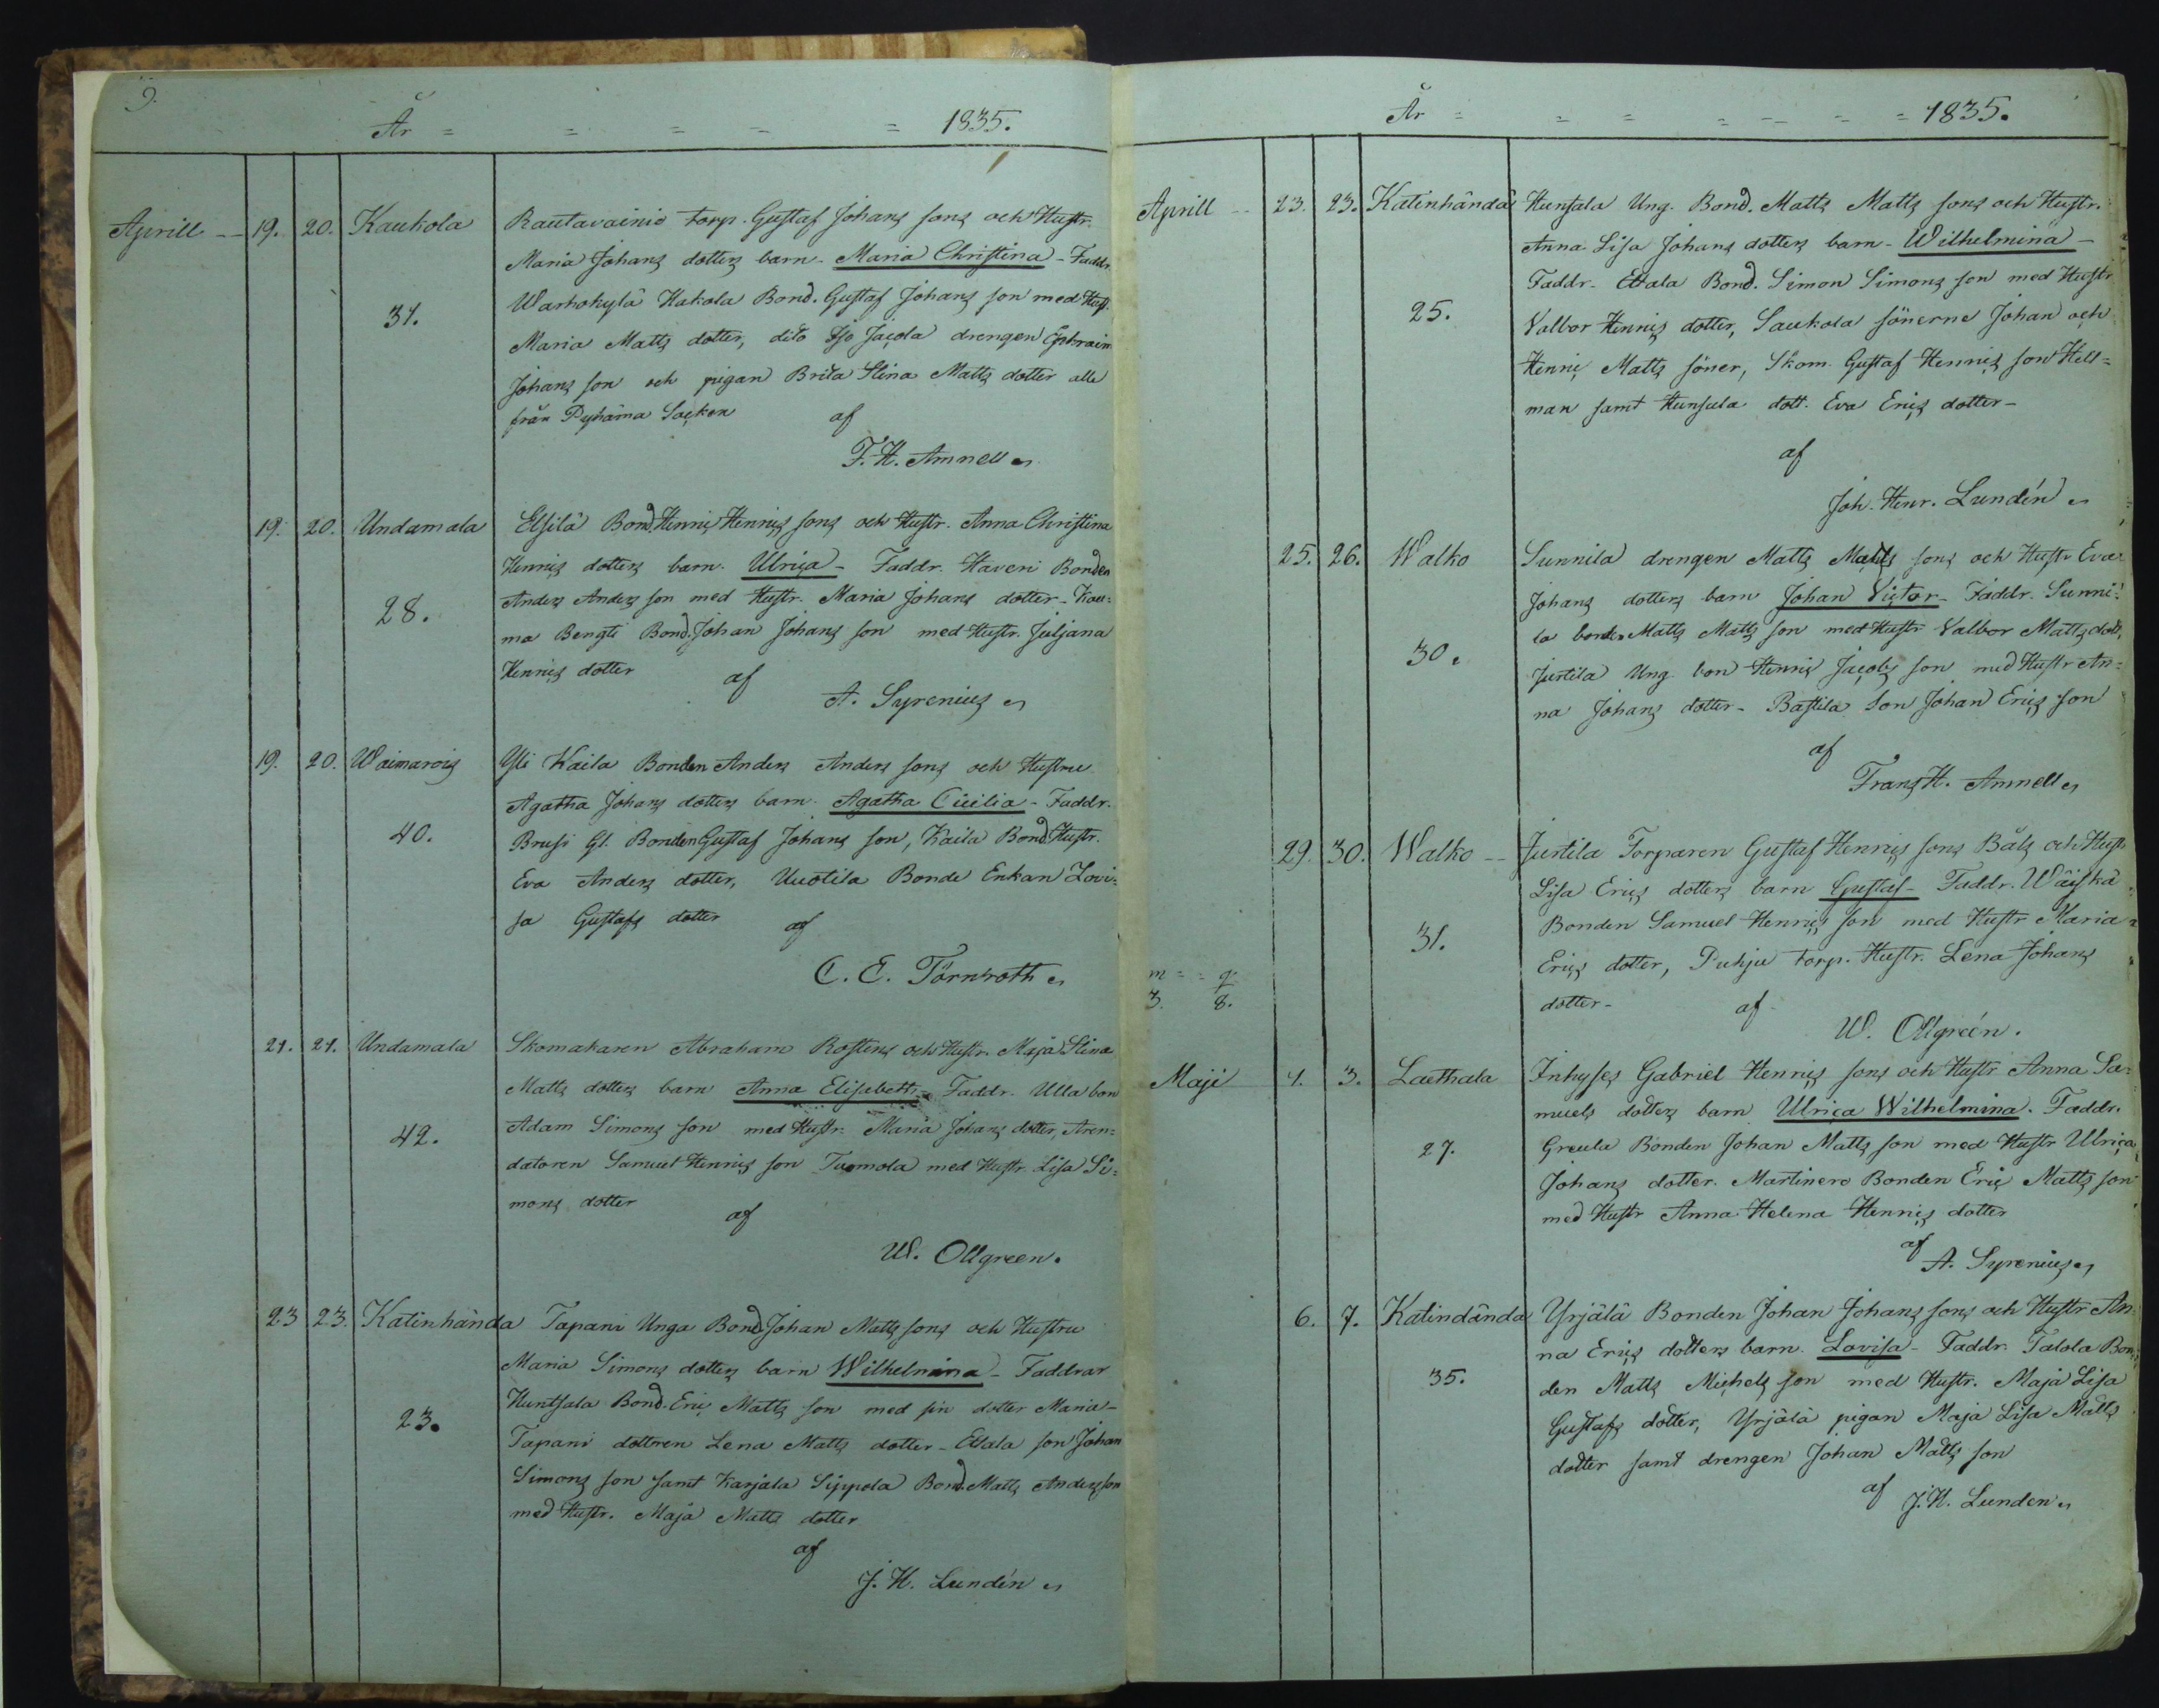 9.
År = = = = = 1835.
Aprill — 19. 20. Kaukola Rautavainio torp. Gustaf Johans sons och Hustr.
Maria Johans dotters barn - Maria Christina - Faddr.
Warhokylä Kakola Bond. Gustaf Johans son med Hust.
31.
Maria Matts dotter, dito Jacola drengen Ephraim
Johans son och pigan Brita Stina Matts dotter alle
från Pyhäma Socken af
F. H. Amnell
19. 20. Undamala Elsilä Bond. Henric Henrics sons och Hustr. Anna Christina
Henrics dotters barn. Ulrica - Faddr. Haveri Bonden
Anders Anders son med Hustr. Maria Johans dotter - Kau=
28.
ma Bengti Bond. Johan Johans son med Hustr. Juljana
Henrics dotter af
A. Syrenius
19. 20. Waimarois Yli Kaila Bonden Anders Anders sons och Hustru
Agatha Johans dotters barn. Agatha Cicilia - Faddr.
40. Brusi Gl. Bonden Gustaf Johans son, Kaila Bond. Hustr.
Eva Anders dotter, Uuotila Bonde Enkan Lovi=
sa Gustafs dotter af
C. E. Törnroth
21. 21. Undamala Skomakaren Abraham Rostens och Hustr. Maja Stina
Matts dotters barn Anna Elisabeth - Faddr. Ulla bon
42. Adam Simons son med Hustr. Maria Johans dotter, Aren=
datoren Samuel Henrics son Tuomola med Hustr. Lisa Si=
mons dotter af
W. Ollgreen.
23 23. Katinhända Tapani Unga Bond. Johan Matts sons och Hustru
Maria Simons dotters barn Wilhelmina - Faddrar
Huntsala Bond. Eric Matts son med sin dotter Maria -
23.
Tapani dottren Lena Matts dotter - Ettala son Johan
Simons son samt Karjala Sippola Bond. Matts Anders son
med Hustr. Maja Matts dotter
af
J. H. Lundén
År = = = = - = = 1835.
Aprill -- 23. 23. Katinhända Hunsala Ung. Bond. Matts Matts sons och Hustr.
Anna Lisa Johans dotters barn - Wilhelmina -
Faddr. Ettala Bond. Simon Simons son med Hustr
25.
Valbor Henrics dotter, Saukola sönerne Johan och
Henric Matts söner, Skom. Gustaf Henrics son Hell=
man samt Hunsula dott. Eva Erics dotter -
af
Joh. Henr. Lundén
25. 26. Walko Sunnila drengen Matts Matts sons och Hustr Eva
Johans dotters barn Johan Victor - Faddr. Sunni=
la bonden Matts Matts son med Hustr Valbor Matts dott,
30.
Jurtila Ung. bon Henric Jacobs son med Hustr An=
na Johans dotter - Bastila Son Johan Erics son
af
Frans H. Amnell
29. 30. Walko -- Jurtila Torparen Gustaf Henrics sons Båls och Hust
Lisa Erics dotters barn Gustaf - Faddr. Wäiskä
Bonden Samuel Henrics son med Hustr Maria
31.
Erics dotter, Puhju torp. Hustr. Lena Johans
m = = q.
3. 8.
dotter - af
W. Ollgreén.
Maji 1. 3. Laethala Inhyses Gabriel Henrics sons och Hustr Anna Sa=
muels dotters barn Ulrica Wilhelmina. Faddr.
27. Greula Bonden Johan Matts son med Hustr Ulrica
Johans dotter. Martinero Bonden Eric Matts son
med Hustr Anna Helena Henrics dotter
af A. Syrenius
6. 7. Katindända Yrjälä Bonden Johan Johans sons och Hustr An
na Erics dotters barn. Lovisa - Faddr. Talola Bon=
35. den Matts Michels son med Hustr. Maja Lisa
Gustafs dotter, Yrjälä pigan Maja Lisa Matts
dotter samt drengen Johan Matts son
af J. H. Lunden